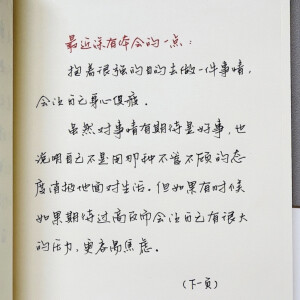 最近深有体会的一点：
抱着很强的目的去做一件事情，
会让自己身心俱疲。
虽然对事情有期待是好事，也
说明自己不是用那种不管不顾的态
度消极地面对生活。但如果有时候
如果期待过高反而会让自己有很大
的压力，更容易焦虑。
（下一页）